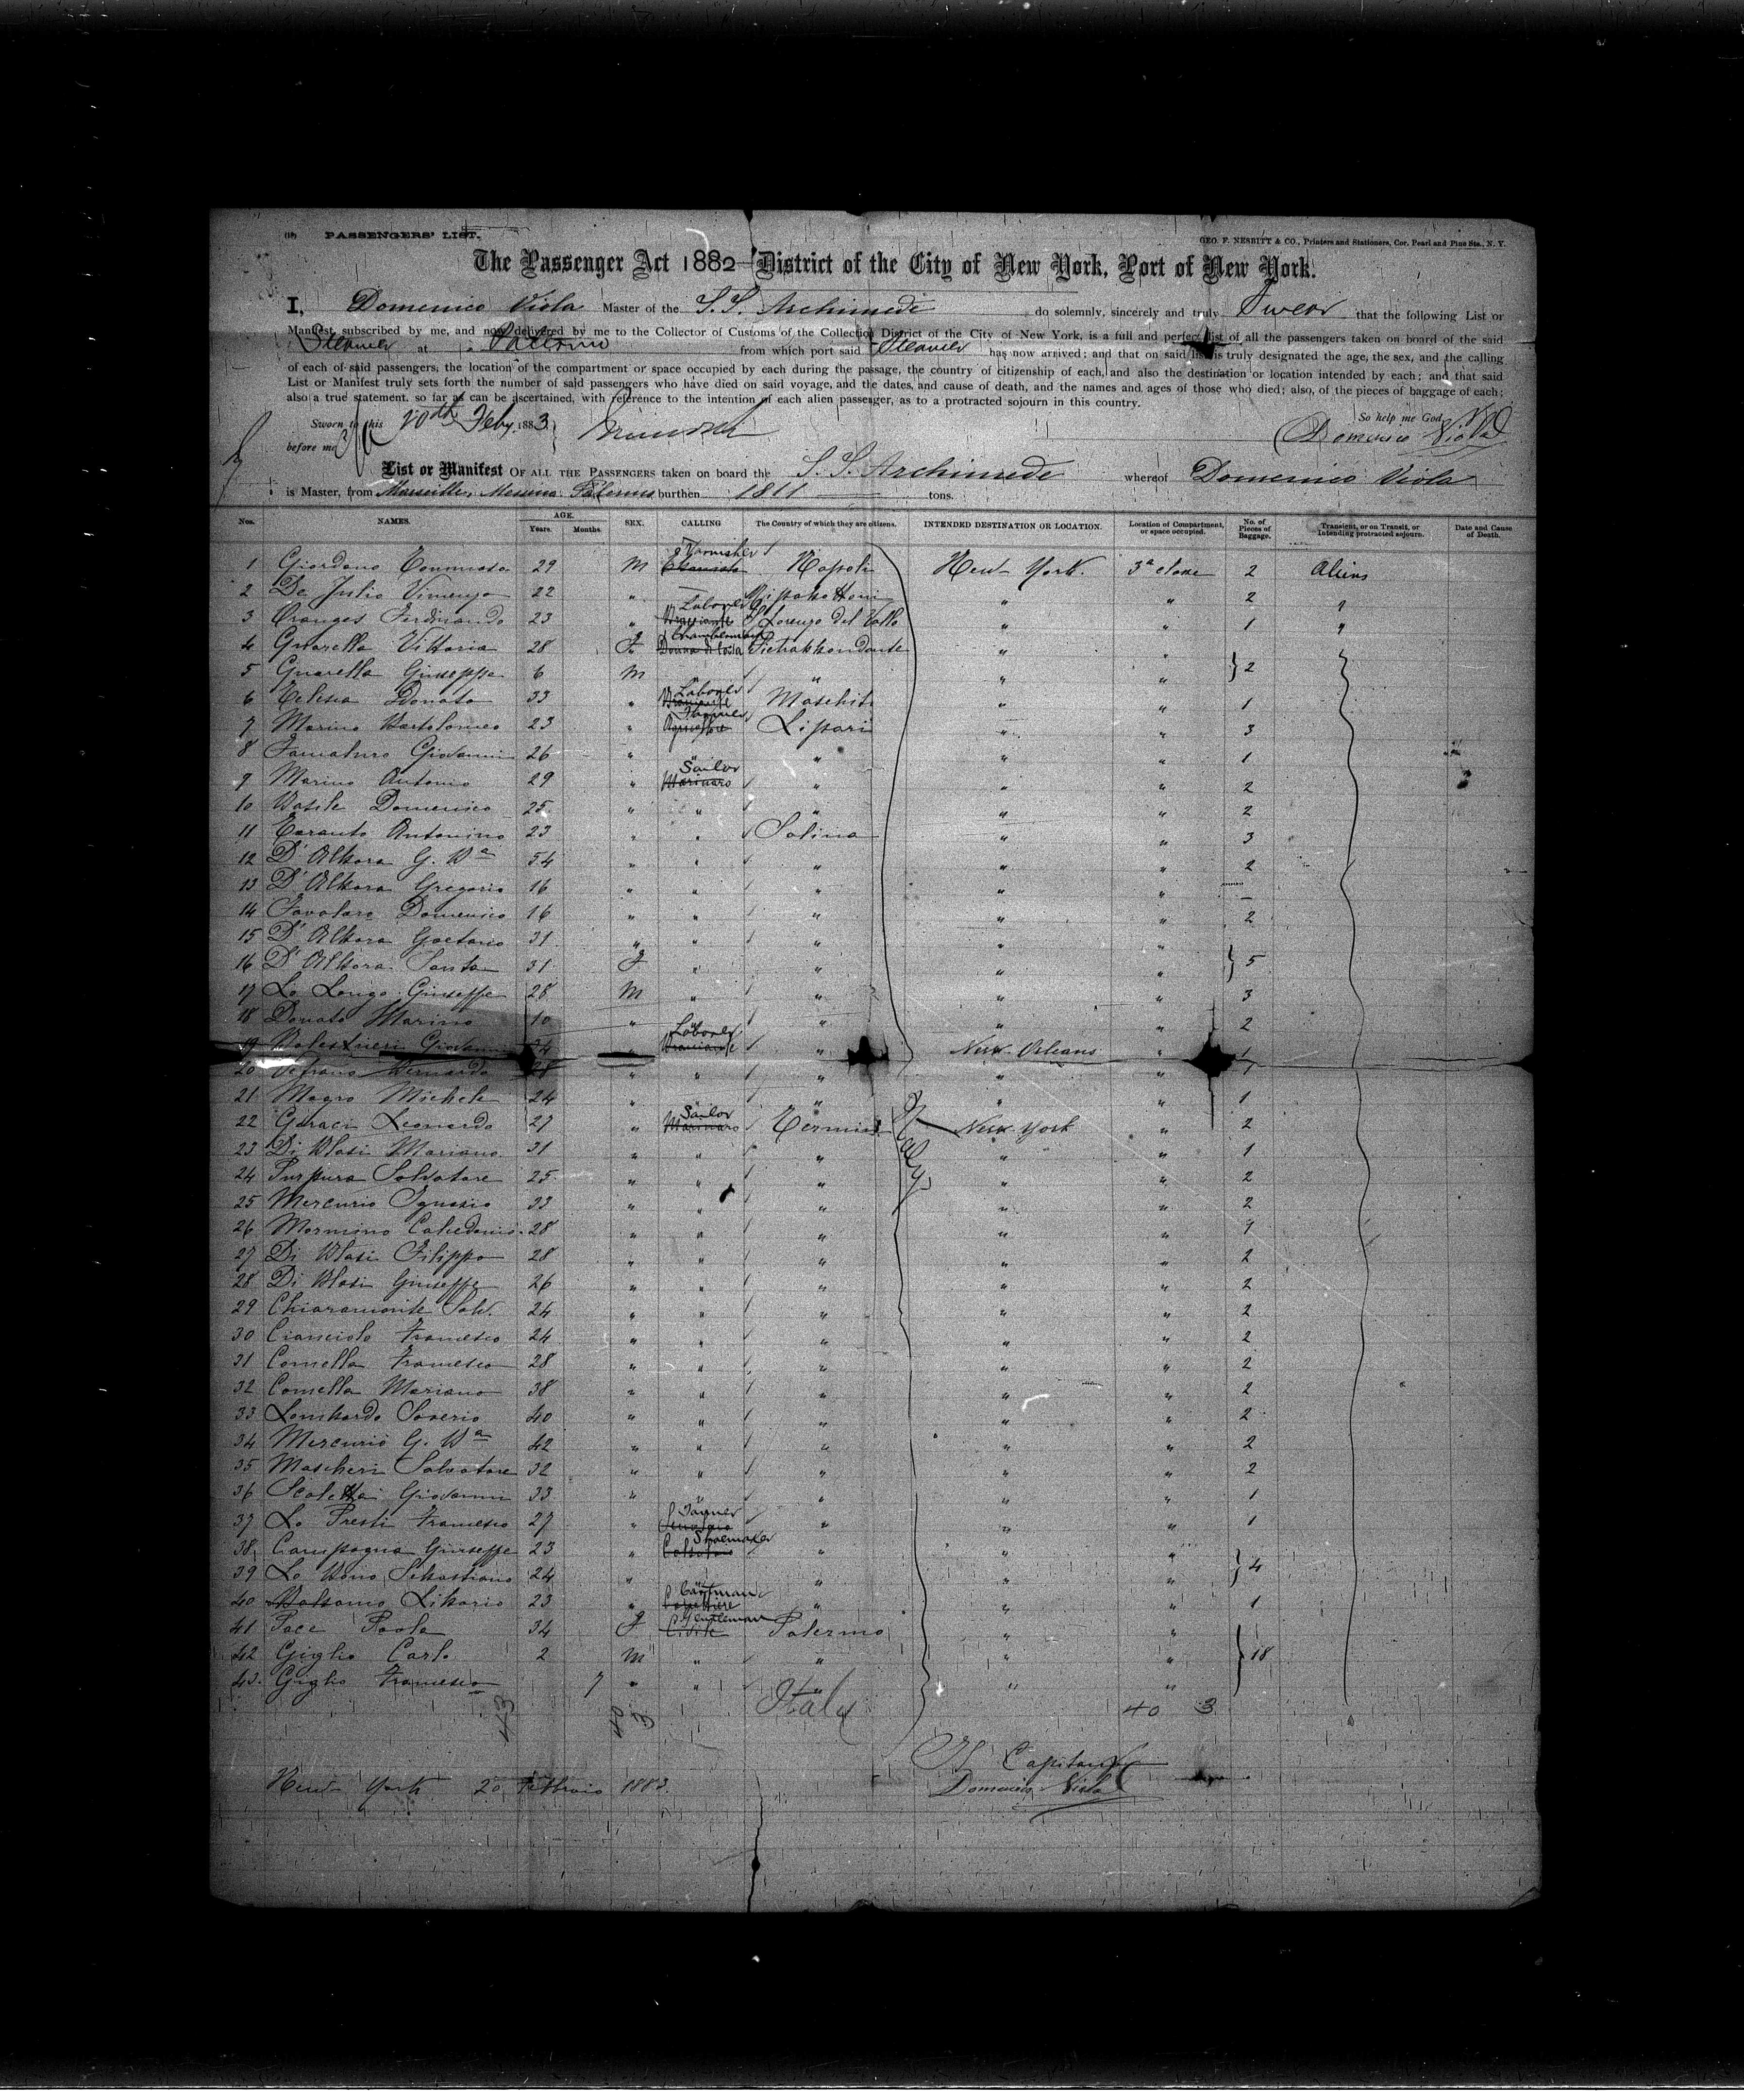 PASSENGERS' LIST.
GEO. F. NESBITT & CO., Printers and Stationers, Cor. Pearl and Pine Sts., N. Y.
The Passenger Act 1882 District of the City of New York, Port of New York.
I, Domenico Viola Master of the S.S. Archimede do solemnly, sincerely and truly Swear that the following List or
Manifest, subscribed by me, and now delivered by me to the Collector of Customs of the Collection District of the City of New York, is a full and perfect list of all the passengers taken on board of the said
Steamer at Palermo from which port said Steamer has now arrived; and that on said list is truly designated the age, the sex, and the calling
of each of said passengers, the location of the compartment or space occupied by each during the passage, the country of citizenship of each, and also the destination or location intended by each; and that said
List or Manifest truly sets forth the number of said passengers who have died on said voyage, and the dates, and cause of death, and the names and ages of those who died; also, of the pieces of baggage of each;
also a true statement, so far as can be ascertained, with reference to the intention of each alien passenger, as to a protracted sojourn in this country.
Sworn to this 20th Feby. 1883 So help me God
before me Domenico Viola
List or Manifest OF ALL THE PASSENGERS taken on board the S.S. Archimede whereof Domenico Viola
is Master, from Marseilles, Messina Palermo burthen 1811 tons.
Nos. NAMES. AGE. Years. Months. SEX. CALLING The Country of which they are citizens. INTENDED DESTINATION OR LOCATION. Location of Compartment, or space occupied. No. of Pieces of Baggage. Transient, or on Transit, or intending protracted sojourn. Date and Cause of Death.
1 Giordano Tommaso 29 M Varnisher Napoli New York. 3a classe 2 Aliens
2 De Julio Vincenzo 22 " " " 2 "
3 Oranges Ferdinando 23 " Laborer S. Lorenzo del Vallo " " 1 "
4 Guarella Vittoria 28 F Chambermaid Donna di Casa Pietrabbondante " "
5 Guarella Giuseppe 6 M " " " " 2
6 Donato 33 " Laborer Maschito " " 1
7 Marino Bartolomeo 23 " Farmer Lipari " " 3
8 Famularo Giovanni 26 " " " " " 1
9 Marino Antonio 29 " Sailor Marinaro " " " 2
10 Basile Domenico 25 " " " " " 2
11 Taranto Antonino 23 " " Salina " " 3
12 D'Albora G. Ba 54 " " " " " 2
13 D'Albora Gregorio 16 " " " " " —
14 Favolaro Domenico 16 " " " " " 2
15 D'Albora Gaetano 31 " " " " "
16 D'Albora Santa 31 F " " " " 5
17 Lo Longo Giuseppe 28 M " " " " 3
18 Donato Marino 10 " " " " " 2
19 Balestrieri Giovanni " Laborer " New Orleans " 1
20 Bernardo 28 " " " " " 1
21 Magro Michele 24 " " " " " 1
22 Geraci Leonardo 27 " Sailor Marinaro Termini New York " 2
23 Di Blasi Mariano 31 " " " " " 1
24 Purpura Salvatore 25 " " " " " 2
25 Mercurio Ignazio 33 " " " " " 2
26 Mormino Calcedonio 28 " " " " " 1
27 Di Blasi Filippo 28 " " " " " 2
28 Di Blasi Giuseppe 26 " " " " " 2
29 Chiaramonte Salv. 24 " " " " " 2
30 Cianciolo Francesco 24 " " " " " 2
31 Comella Francesco 28 " " " " " 2
32 Comella Mariano 38 " " " " " 2
33 Lombardo Saverio 40 " " " " " 2
34 Mercurio G. Ba 42 " " " " " 2
35 Mascheri Salvatore 32 " " " " " 2
36 Giovanni 33 " " " " " 1
37 Lo Presti Francesco 27 " Tanner " " " 1
38 Campagna Giuseppe 23 " Shoemaker Calzolaio " " "
39 Lo Bono Sebastiano 24 " " " " " 4
40 Balsamo Liborio 23 " Cartman Carrettiere " " " 1
41 Pace Paola 34 F Gentleman Civile Palermo " "
42 Giglio Carlo 2 M " " " " 18
43 Giglio Francesco 7 " " " " "
Italy
43
40 3
Italy
40 3
Il Capitano
New York 20 Febbraio 1883. Domenico Viola